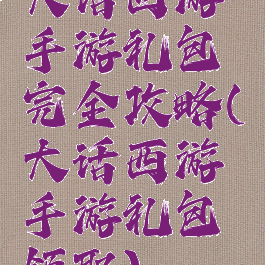 大话西游
手游礼包
完全攻略(
大话西游
手游礼包
领取)